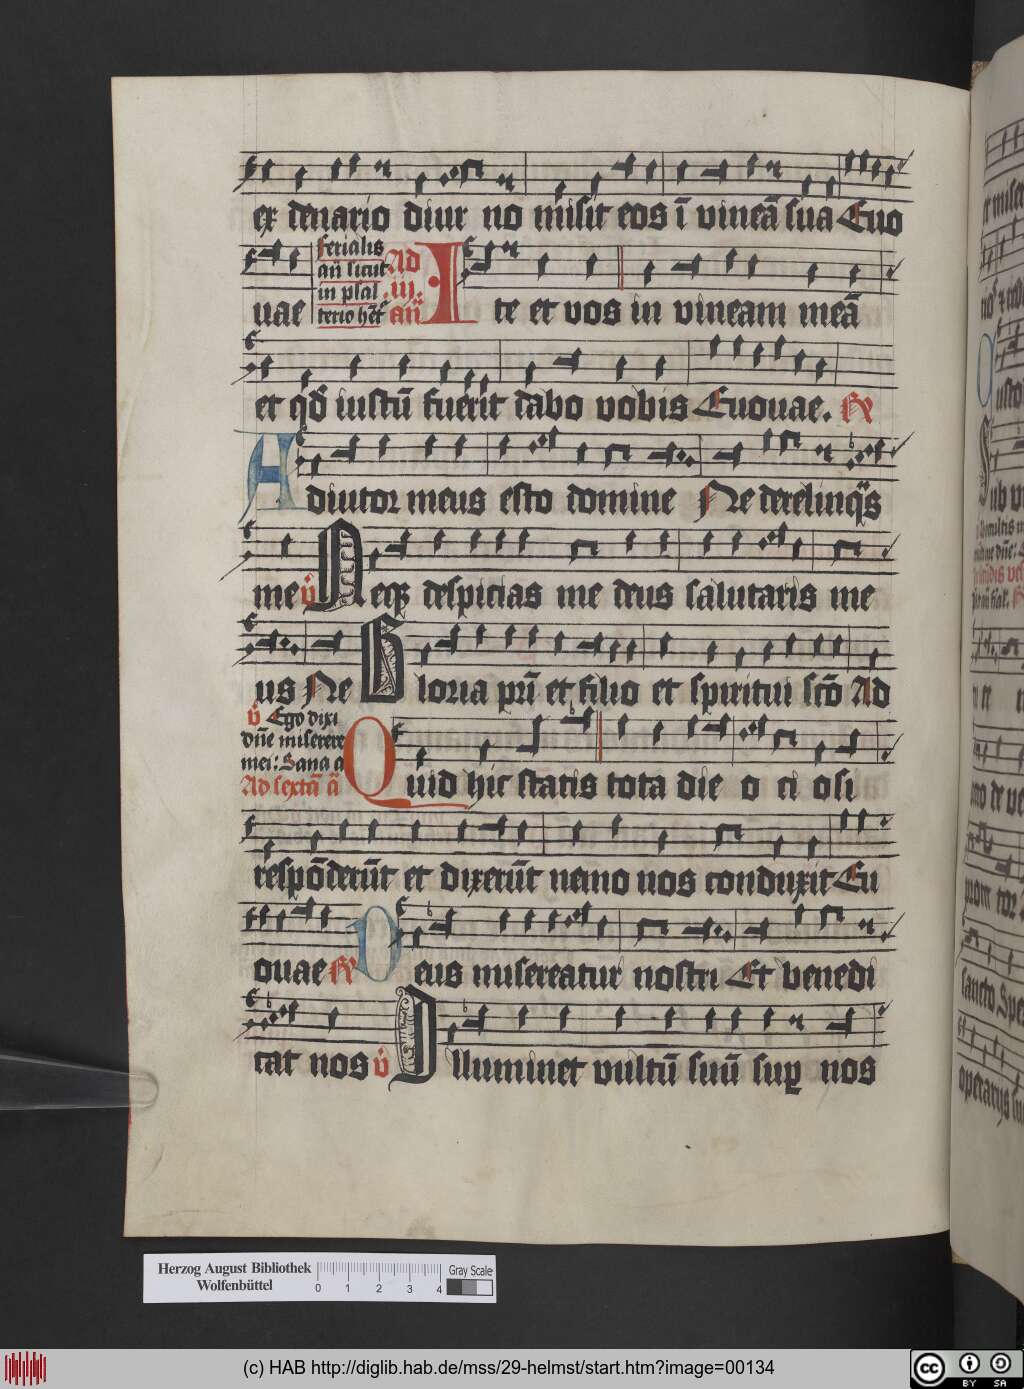 ex denario diur no misit eos ī vineā sua Euo
uae
ferialis
añ sicut
in psal
terio hct̄
Ad
.iii.
añ
I te et vos in vineam meā
et qd̄ iustū fuerit dabo vobis Euouae. R̸
Adiutor meus esto domine Ne derelinqͣs
me v̊ Neqꝫ despicias me deus salutaris me
us Ne Gloria pr̄i et filio et spiritui sctō Ad
v̊ Ego dixi
dn̄e miserere
mei: Sana a
Ad sextā ā
Quid hic statis tota die o ci osi
respōderūt et dixerūt nemo nos conduxit Eu
ouae R̸ Deus misereatur nostri Et benedi
cat nos v̊ Illuminet vultū suū suꝑ nos
Herzog August Bibliothek
Wolfenbüttel
0 1 2 3 4
Gray Scale
(c) HAB http://diglib.hab.de/mss/29-helmst/start.htm?image=00134
cc BY SA